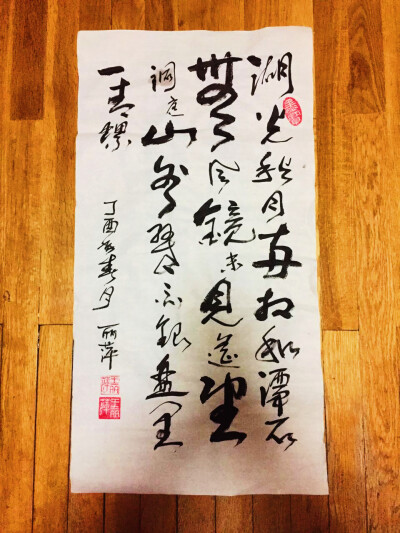 湖光秋月両相和潭面
無風鏡未見遥望
洞庭山水翠白銀盤里
一青螺
丁酉年春月 丽萍